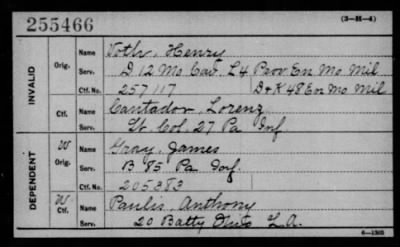 255466 (3-H-4)
INVALID
Orig. Name Toth, Henry
Serv. D 12 Mo Cav. L 4 Prov En Mo Mil
Ctf. No. 257117 D & K 48 En Mo Mil
Ctf. Name Cantador, Lorenz
Serv. Lt Col. 27 Pa Inf
DEPENDENT
W Orig. Name Gray, James
Serv. B 85 Pa Inf.
Ctf. No. 205383
W Ctf. Name Paulis, Anthony
Serv. 20 Batty Ohio L.A.
6-1303